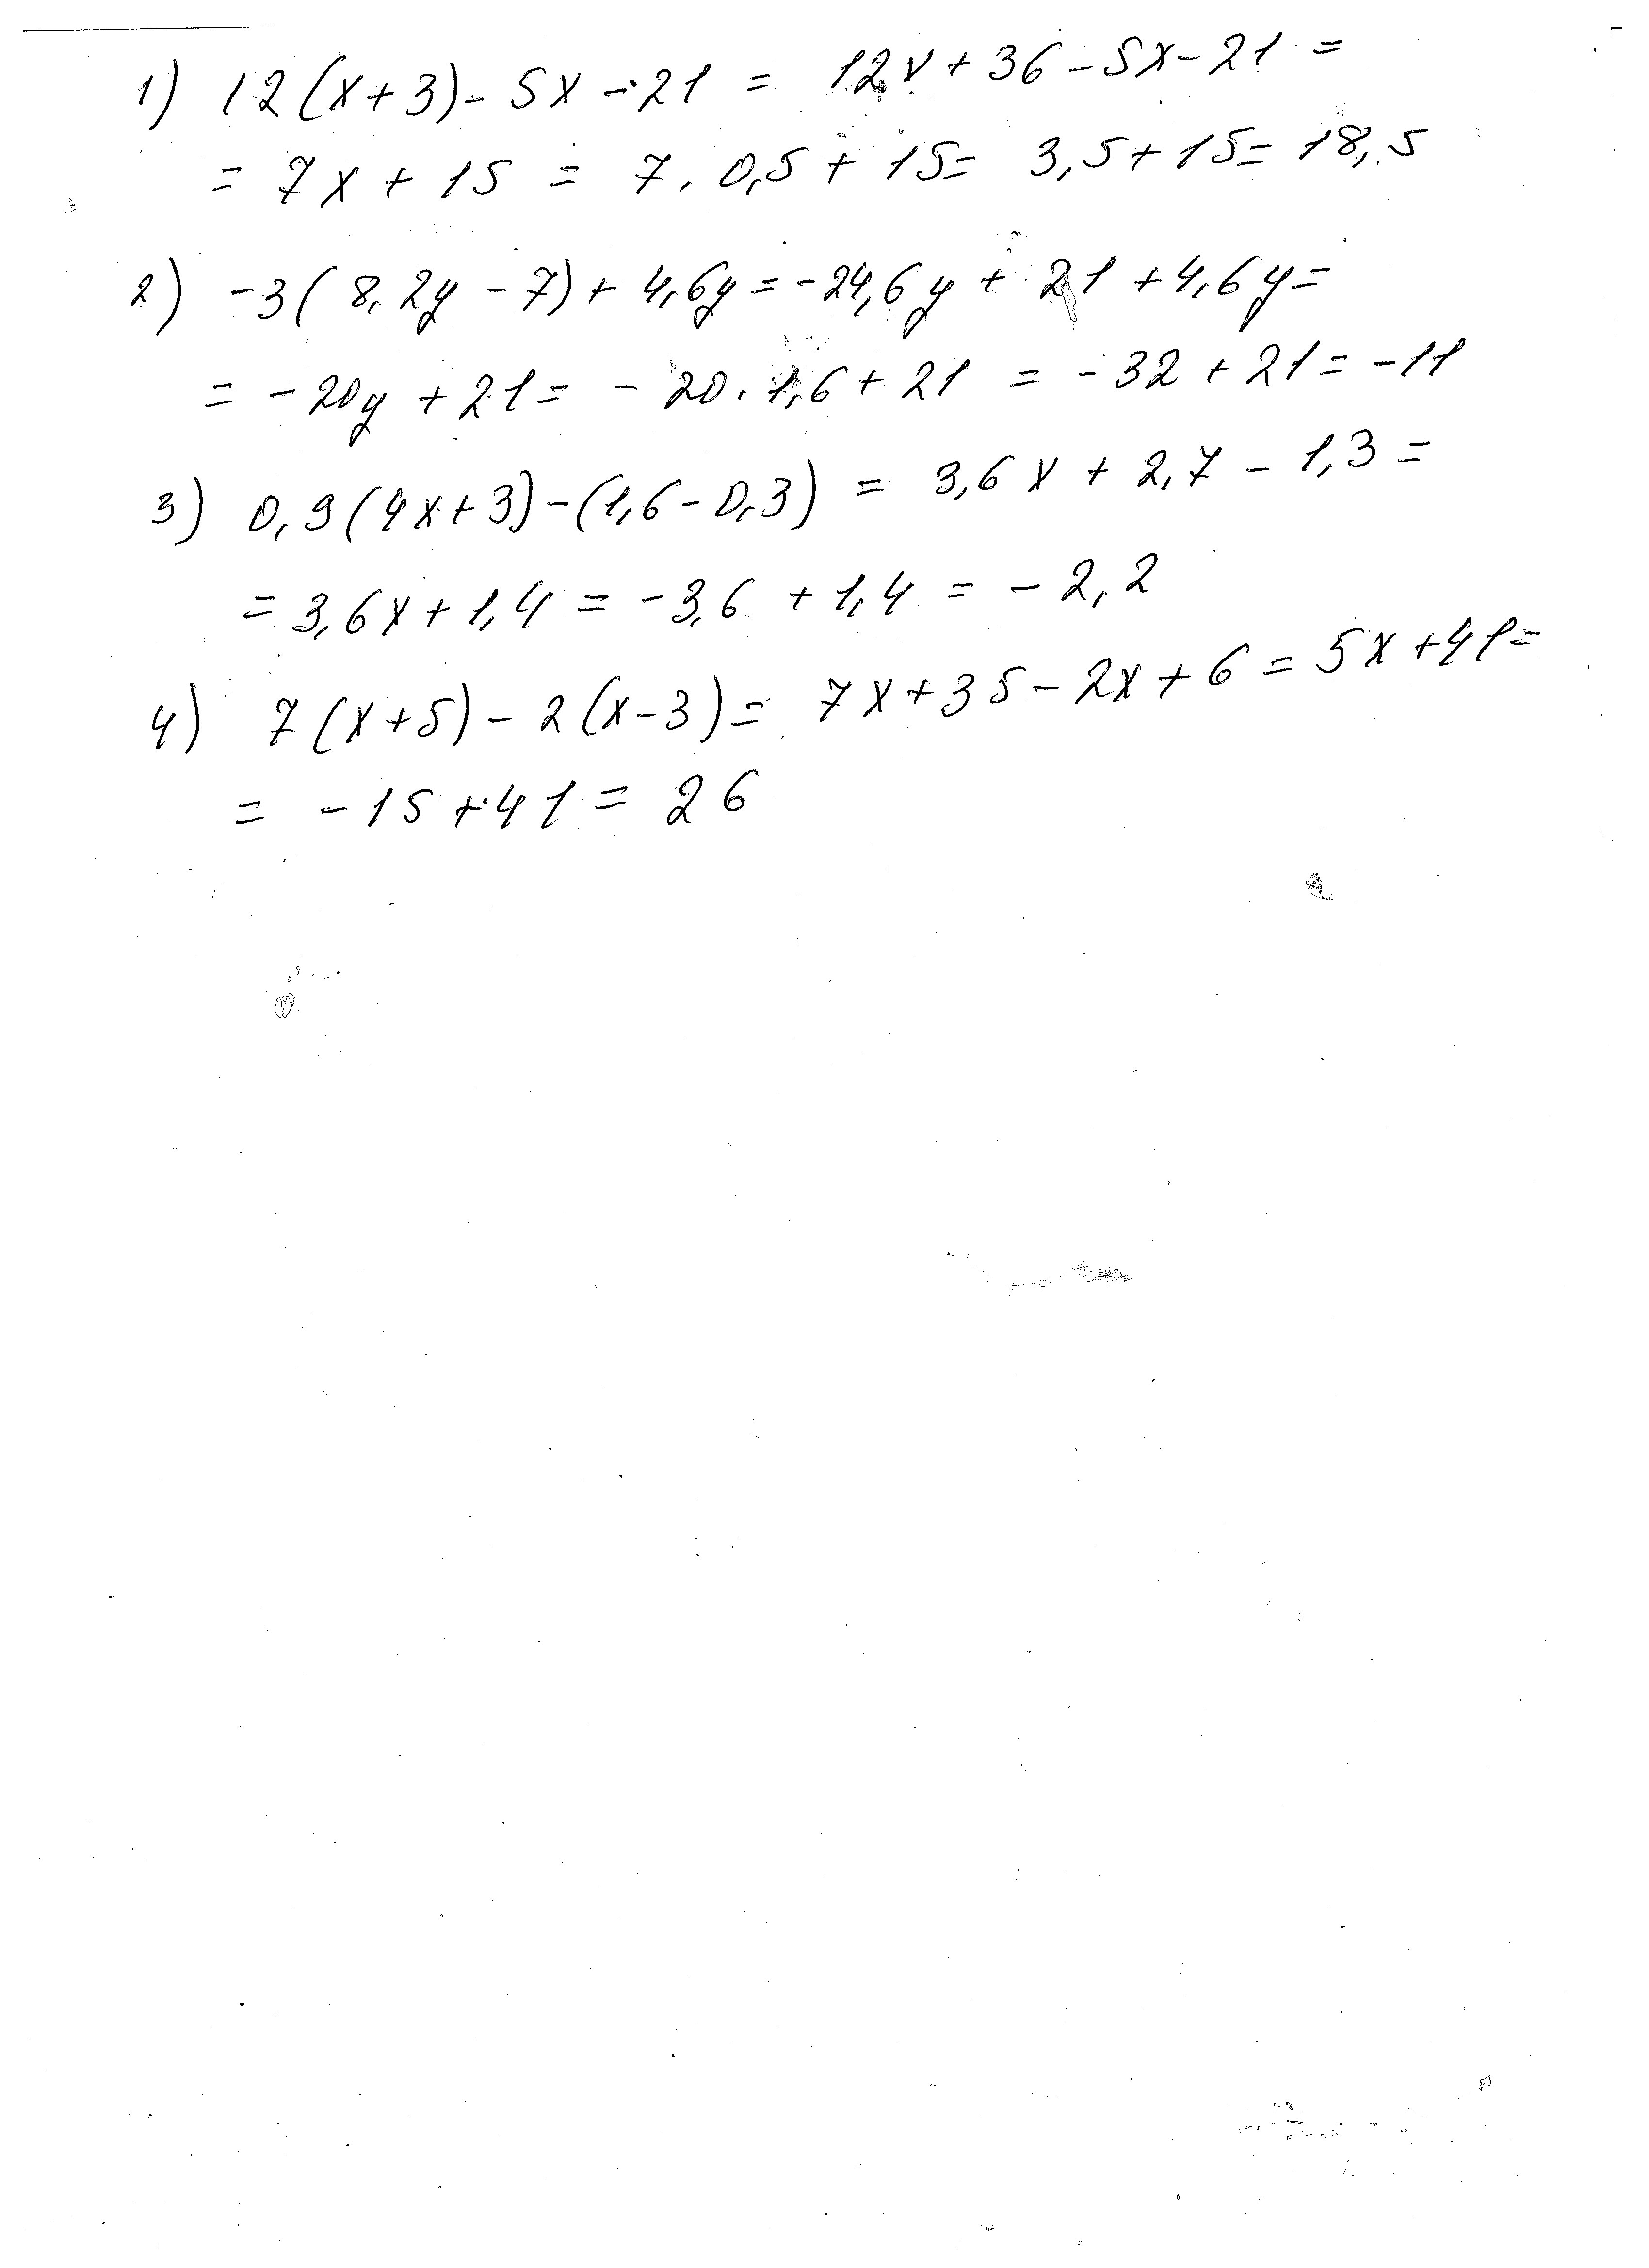 1) 12(x+3)- 5x -21 = 12x+36-5x-21 =
= 7x + 15 = 7 . 0,5 + 15= 3,5+15= 18,5
2) -3( 8,2y -7)+ 4,6y=-24,6y + 21 +4,6y=
= -20y +21= - 20.1,6+21 = -32+21=-11
3) 0,9(4x+3)-(1,6-0,3) = 3,6x + 2,7 - 1,3 =
= 3,6x+1,4 = -3,6 +1,4 = -2,2
4) 7(x+5)- 2(x-3)= 7x+35-2x+6=5x+41=
= -15+41= 26